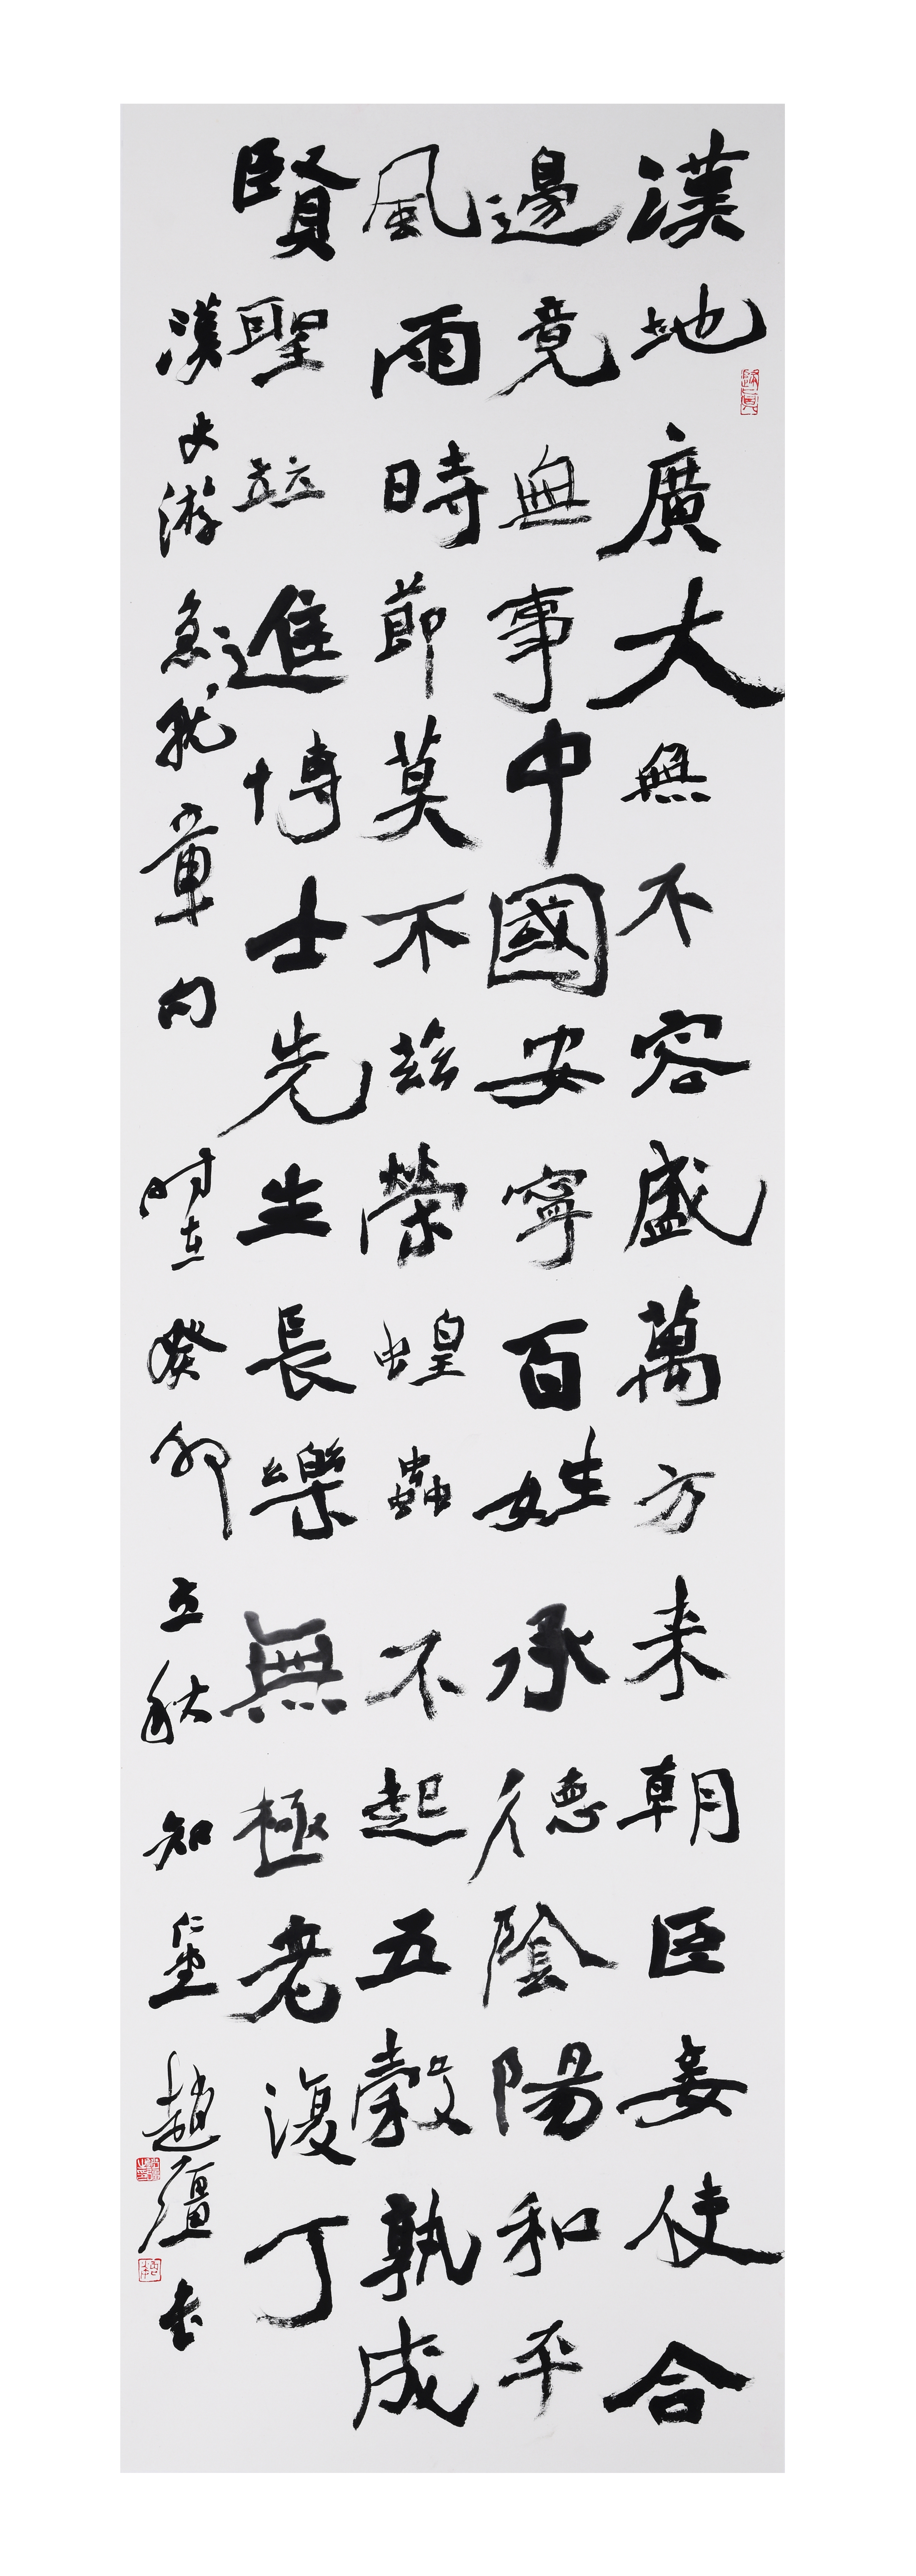 漢地廣大無不容盛萬方来朝臣妾使合
邊竟無事中國安寧百姓承德陰陽和平
風雨時節莫不兹榮蝗蟲不起五穀孰成
賢聖並進博士先生長樂無極老復丁
漢史游急就章句 時在癸卯立秋 知仁堂趙 書